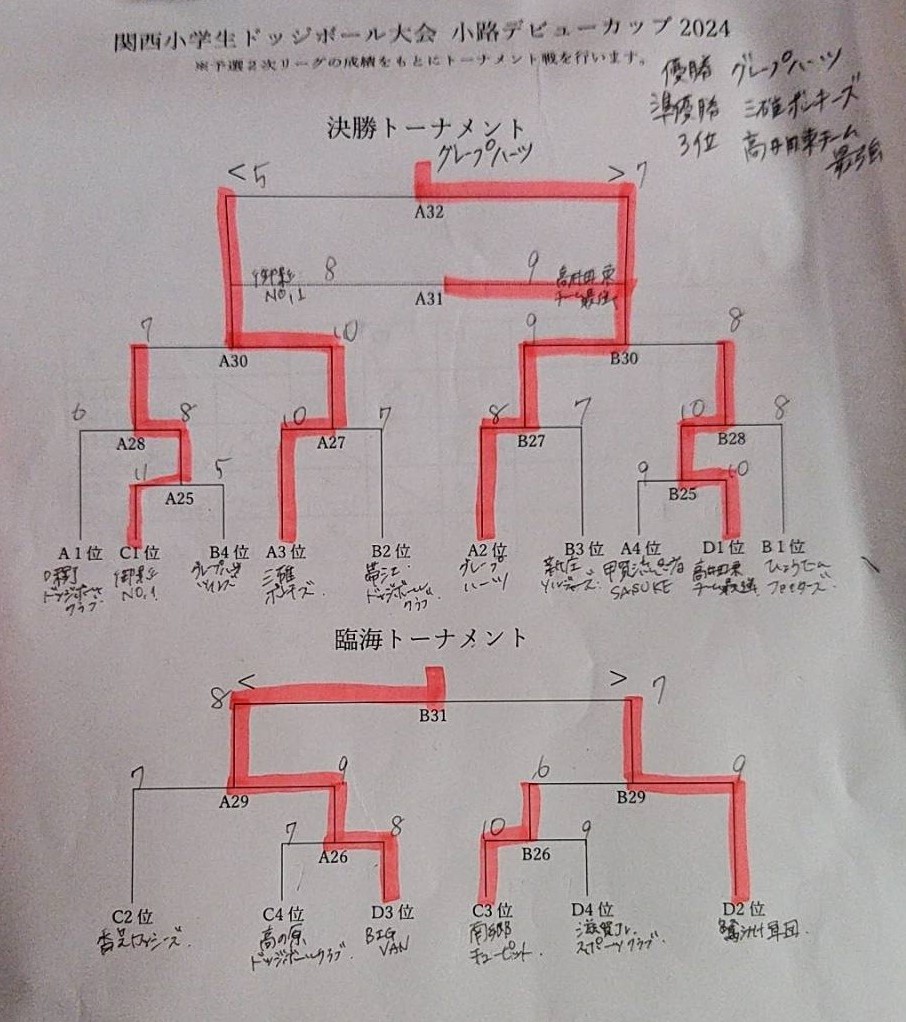 関西小学生ドッジボール大会 小路デビューカップ 2024
※予選2次リーグの成績をもとにトーナメント戦を行います。
優勝 グレープハーツ
準優勝 三碓ボンキーズ
3位 高井田東チーム
最強
決勝トーナメント
グレープハーツ
< 5 > 7
A32
御果丘 8 9 高井田東
NO,1 A31 チーム最強
7 10 9 8
A30 B30
6 8 10 7 8 7 10 8
A28 A27 B27 B28
11 5 9 10
A25 B25
A1位 C1位 B4位 A3位 B2位 A2位 B3位 A4位 D1位 B1位
ドッジボール
クラブ
NO.1
三碓
帯江
ドッジボール
クラブ
グレープ
ハーツ
新庄
甲賀流
SASUKE
高井田東
チーム最強
ひょうたん
臨海トーナメント
8 < > 7
B31
7 9 6 9
A29 B29
7 8 10 9
A26 B26
C2位 C4位 D3位 C3位 D4位 D2位
高の原
ドッジボールクラブ
BIG
VAN
南郷
キューピット
滋賀Jr.
スポーツクラブ
軍団